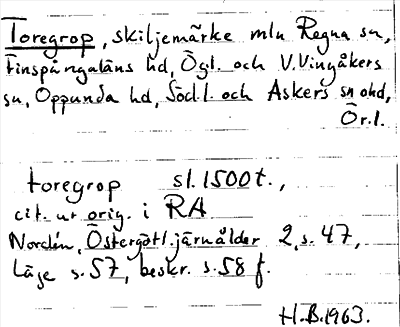 Toregrop, skiljemärke mln Regna sn,
Finspångaläns hd, Ögl. och V. Vingåkers
sn, Oppunda hd, Södl. och Askers sn ohd,
Ör.l.
toregrop sl. 1500t.,
cit. ur orig. i RA
Nordén, Östergötl. järnålder 2, s. 47,
Läge s. 57, beskr. s. 58 f.
H.B. 1963.